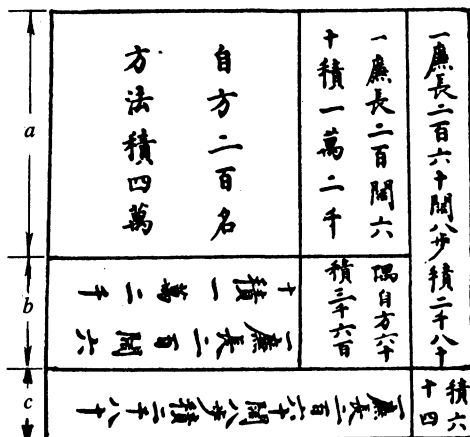 一廉長二百六十闊八步積二千八十
一廉長二百闊六
十積一萬二千
自方二百名
方法積四萬
隅自方六十
積三千六百
一廉長二百闊六
十積一萬二千
積六
十四
一廉長二百六十闊八步積二千八十
a
b
c